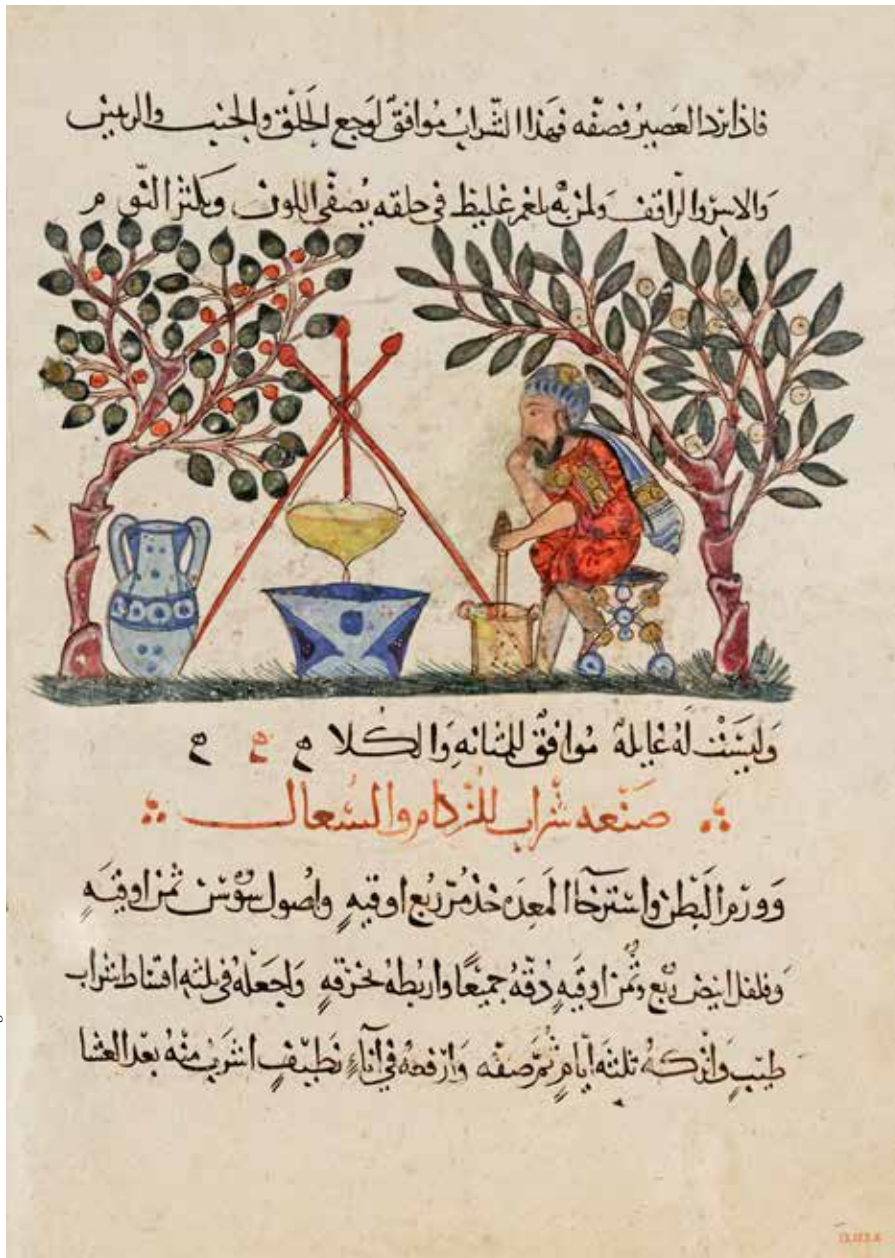 فاذا برد العصير فصفّه فهذا الشراب موافق لوجع الحلق والجنب والريه
والاسر والراقف ولمن به بلغم غليظ في حلقه يصفّي اللون ويكثر النوم
وليست له غايله موافق للمثانه والكلا ح ح ح
صنعه شراب للزكام والسعال
وورم البطن واسترخا المعده خذ مرّ ربع اوقيهٍ واصول سوسن ثمن اوقيهٍ
وفلفل ابيض ربع وثمن اوقيهٍ دقّه جميعًا واربطه بخرقهٍ واجعله في ثلثه اقساط شراب
طيّب واتركه ثلثه ايامٍ ثمّ صفّه وارفعه في اناءٍ نظيفٍ اشرب منه بعد العشا
13.152.6